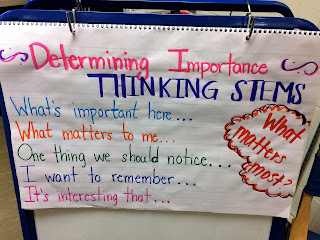 Determining Importance
THINKING STEMS
What's important here...
What matters to me...
One thing we should notice...
I want to remember...
It's interesting that...
What
matters
most?